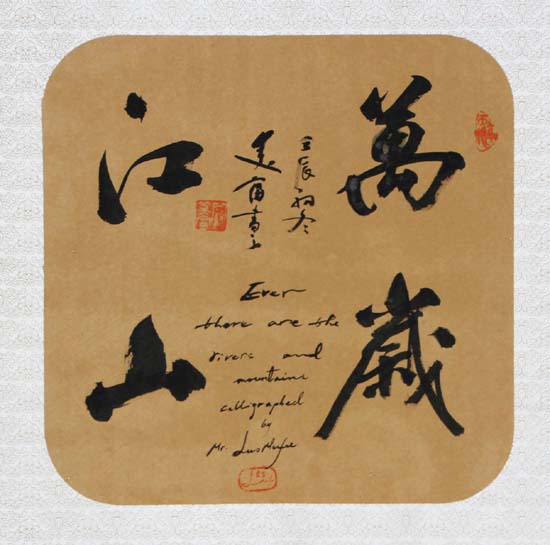 萬歲
壬辰初冬
美富書
江山
Ever
there are the
rivers and
mountains
calligraphed
by
Mr. LuoMeifu